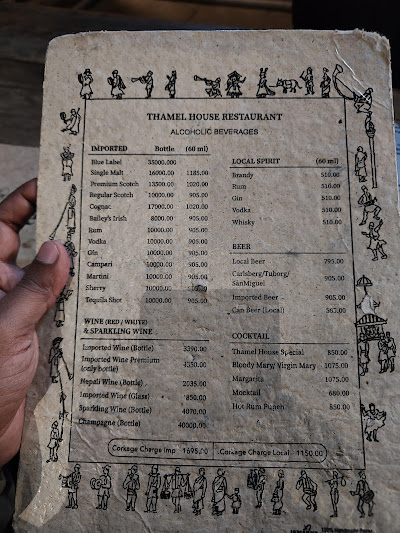 THAMEL HOUSE RESTAURANT
ALCOHOLIC BEVERAGES
IMPORTED Bottle (60 ml)
Blue Label 35000.000
Single Malt 16000.00 1185.00
Premium Scotch 13500.00 1020.00
Regular Scotch 10000.00 905.00
Cognac 17000.00 1020.00
Bailey's Irish 8000.00 905.00
Rum 10000.00 905.00
Vodka 10000.00 905.00
Gin 10000.00 905.00
Campari 10000.00 905.00
Martini 10000.00 905.00
Sherry 10000.00 905.00
Tequila Shot 10000.00 905.00
WINE (RED / WHITE)
& SPARKLING WINE
Imported Wine (Bottle) 3390.00
Imported Wine Premium
(only bottle) 4350.00
Nepali Wine (Bottle) 2035.00
Imported Wine (Glass) 850.00
Sparkling Wine (Bottle) 4070.00
Champagne (Bottle) 40000.00
LOCAL SPIRIT (60 ml)
Brandy 510.00
Rum 510.00
Gin 510.00
Vodka 510.00
Whisky 510.00
BEER
Local Beer 795.00
Carlsberg/Tuborg/
SanMiguel 905.00
Imported Beer 905.00
Can Beer (Local)
COCKTAIL
Thamel House Special 850.00
Bloody Mary/Virgin Mary 1075.00
Margarita 1075.00
Mocktail 680.00
Hot Rum Punch 850.00
Corkage Charge Imp 1695.00 Corkage Charge Local 1150.00